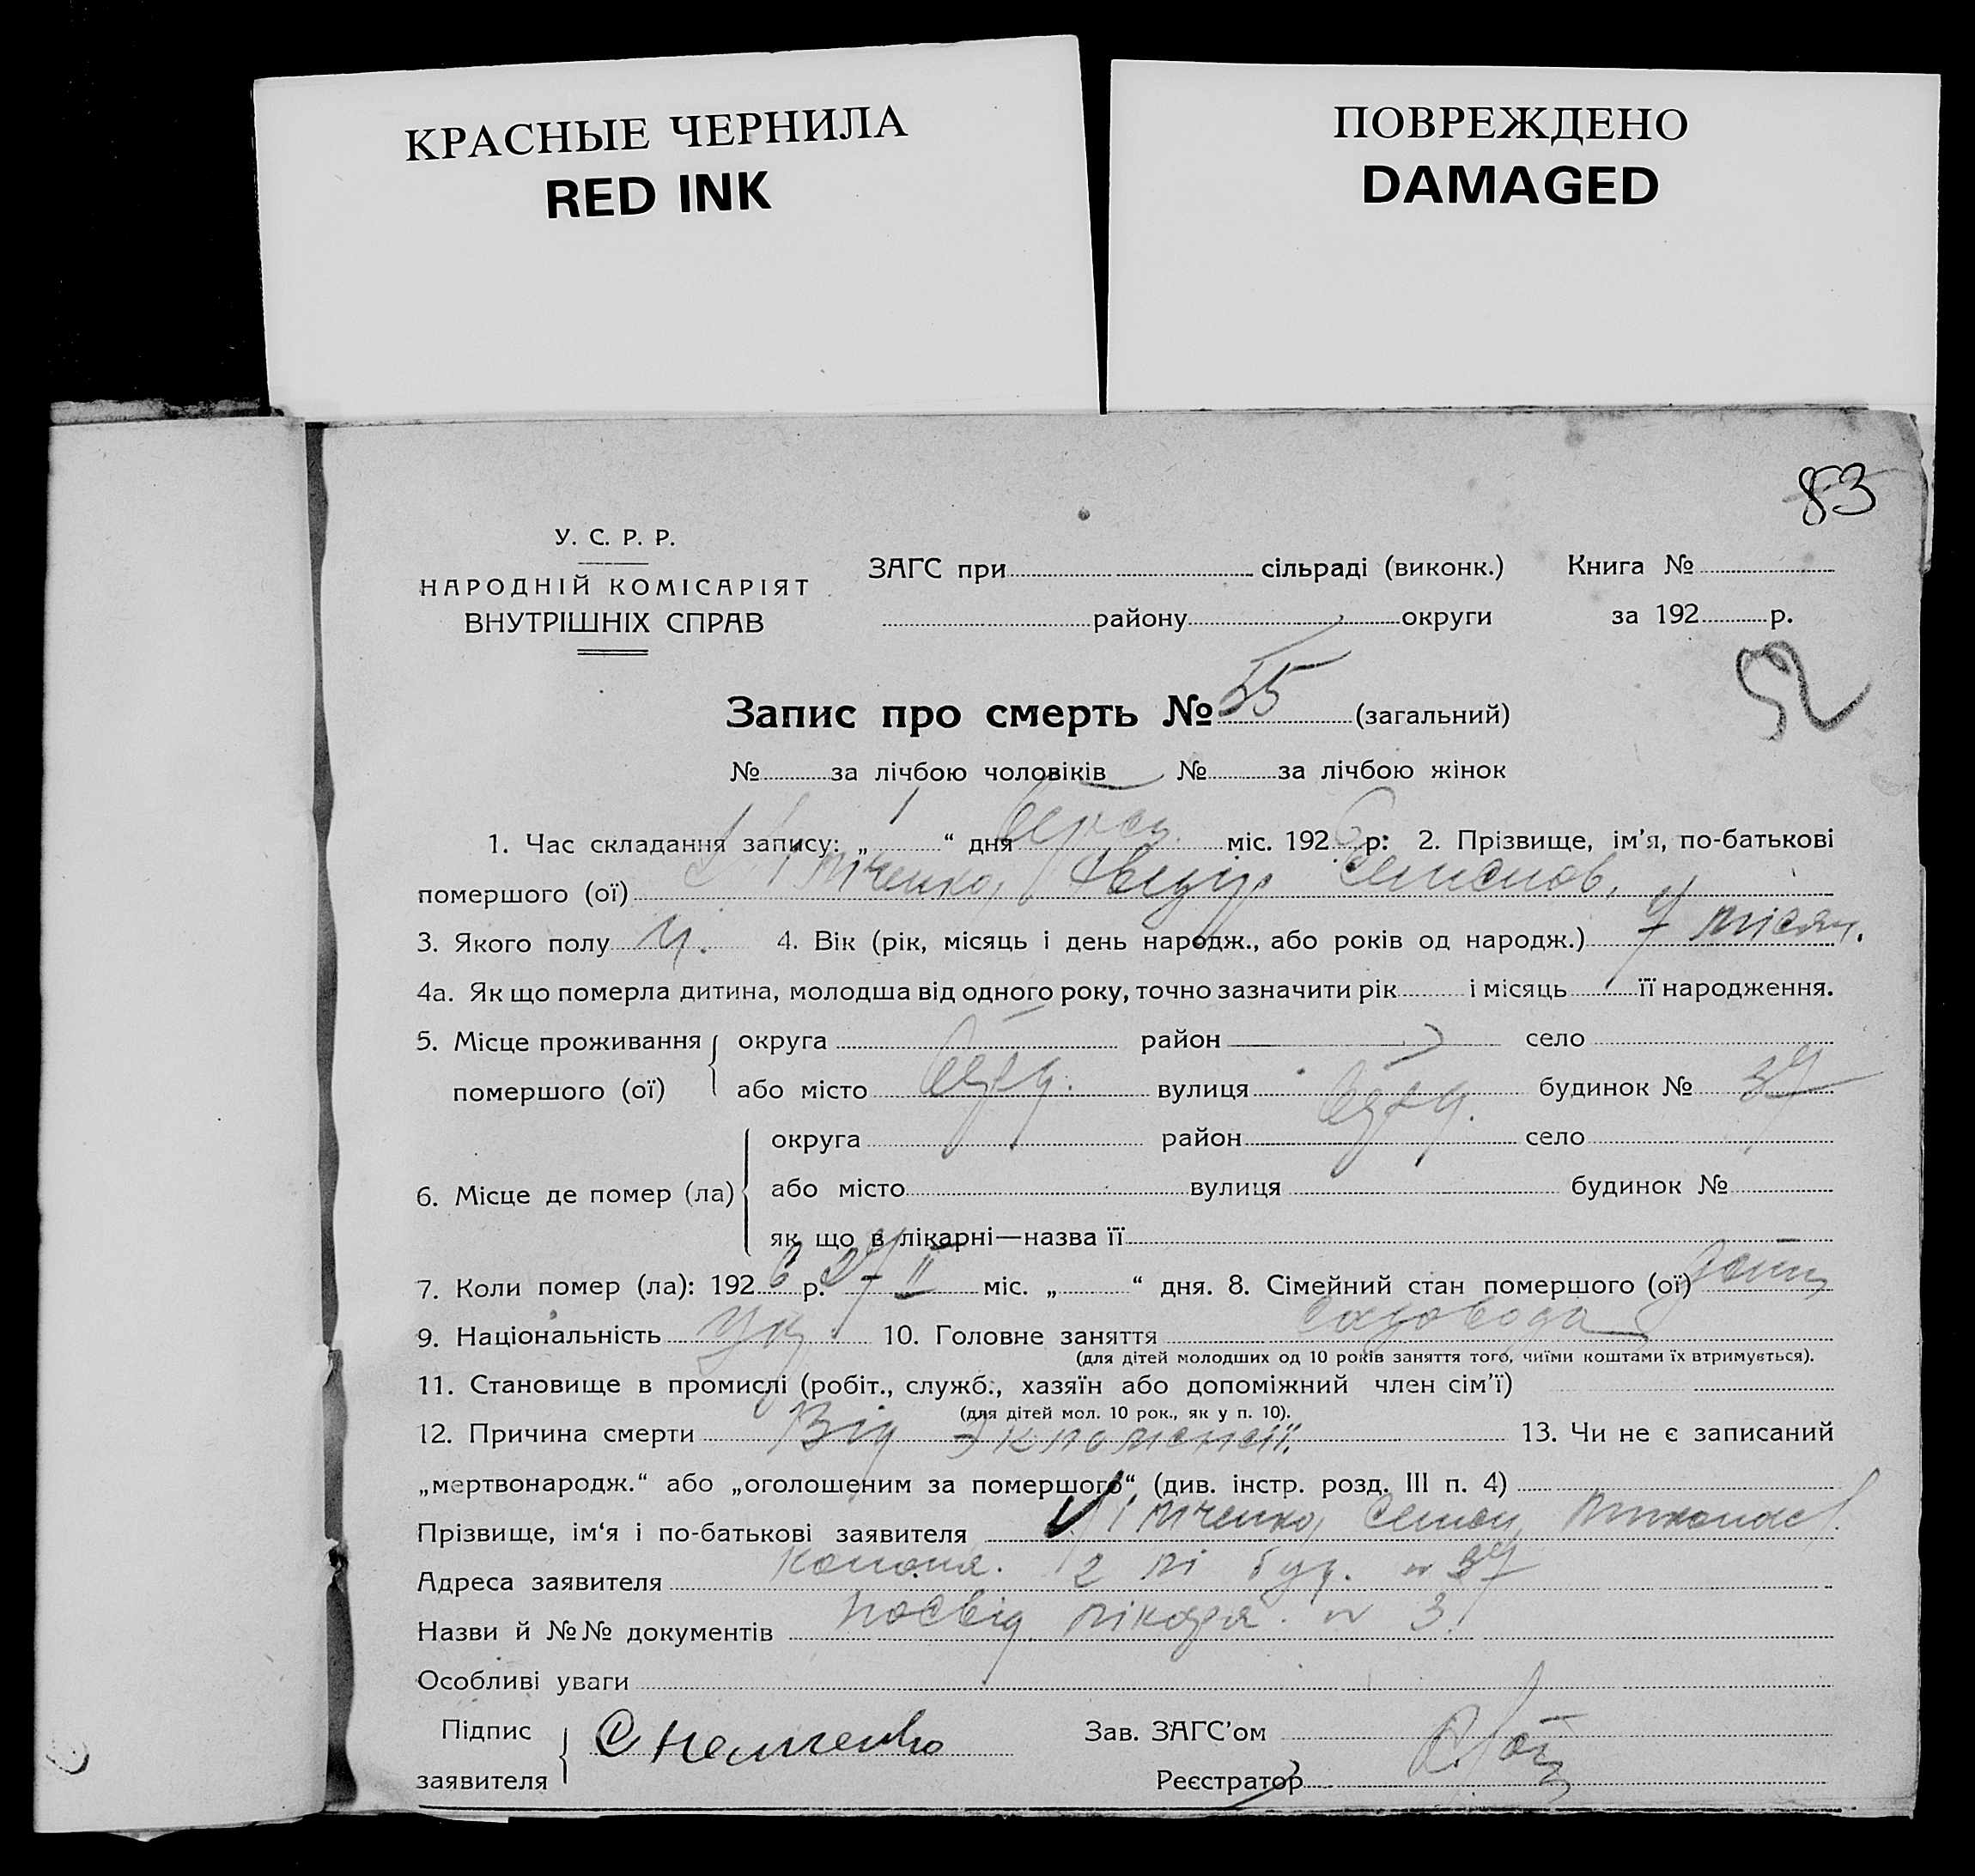 КРАСНЫЕ ЧЕРНИЛА
RED INK
ПОВРЕЖДЕНО
DAMAGED
83
У. С. Р. Р.
НАРОДНІЙ КОМІСАРІЯТ
ВНУТРІШНІХ СПРАВ
ЗАГС при сільраді (виконк.) Книга №
району округи за 192 р.
52
Запис про смерть № 55 (загальний)
№ за лічбою чоловіків № за лічбою жінок
1. Час складання запису: „ 1 “ дня міс. 1926 р: 2. Прізвище, ім’я, по-батькові
помершого (ої)
3. Якого полу Ч. 4. Вік (рік, місяць і день народж., або років од народж.) 7 місяц.
4а. Як що померла дитина, молодша від одного року, точно зазначити рік і місяць її народження.
5. Місце проживання округа район село
помершого (ої) або місто вулиця будинок № 37
округа район село
6. Місце де помер (ла) або місто вулиця будинок №
як що в лікарні—назва її
7. Коли помер (ла): 1926 р. 27 II міс. „ “ дня. 8. Сімейний стан помершого (ої)
9. Національність Укр 10. Головне заняття садовода
(для дітей молодших од 10 років заняття того, чиїми коштами їх втримується).
11. Становище в промислі (робіт., служб., хазяїн або допоміжний член сім’ї)
(для дітей мол. 10 рок., як у п. 10).
12. Причина смерти Від 13. Чи не є записаний
„мертвонародж.“ або „оголошеним за помершого“ (див. інстр. розд. III п. 4)
Прізвище, ім‘я і по-батькові заявителя Семен
Адреса заявителя буд. № 37
Назви й №№ документів посвід. лікаря № 3.
Особливі уваги
Підпис
заявителя
Зав. ЗАГС’ом
Реєстратор